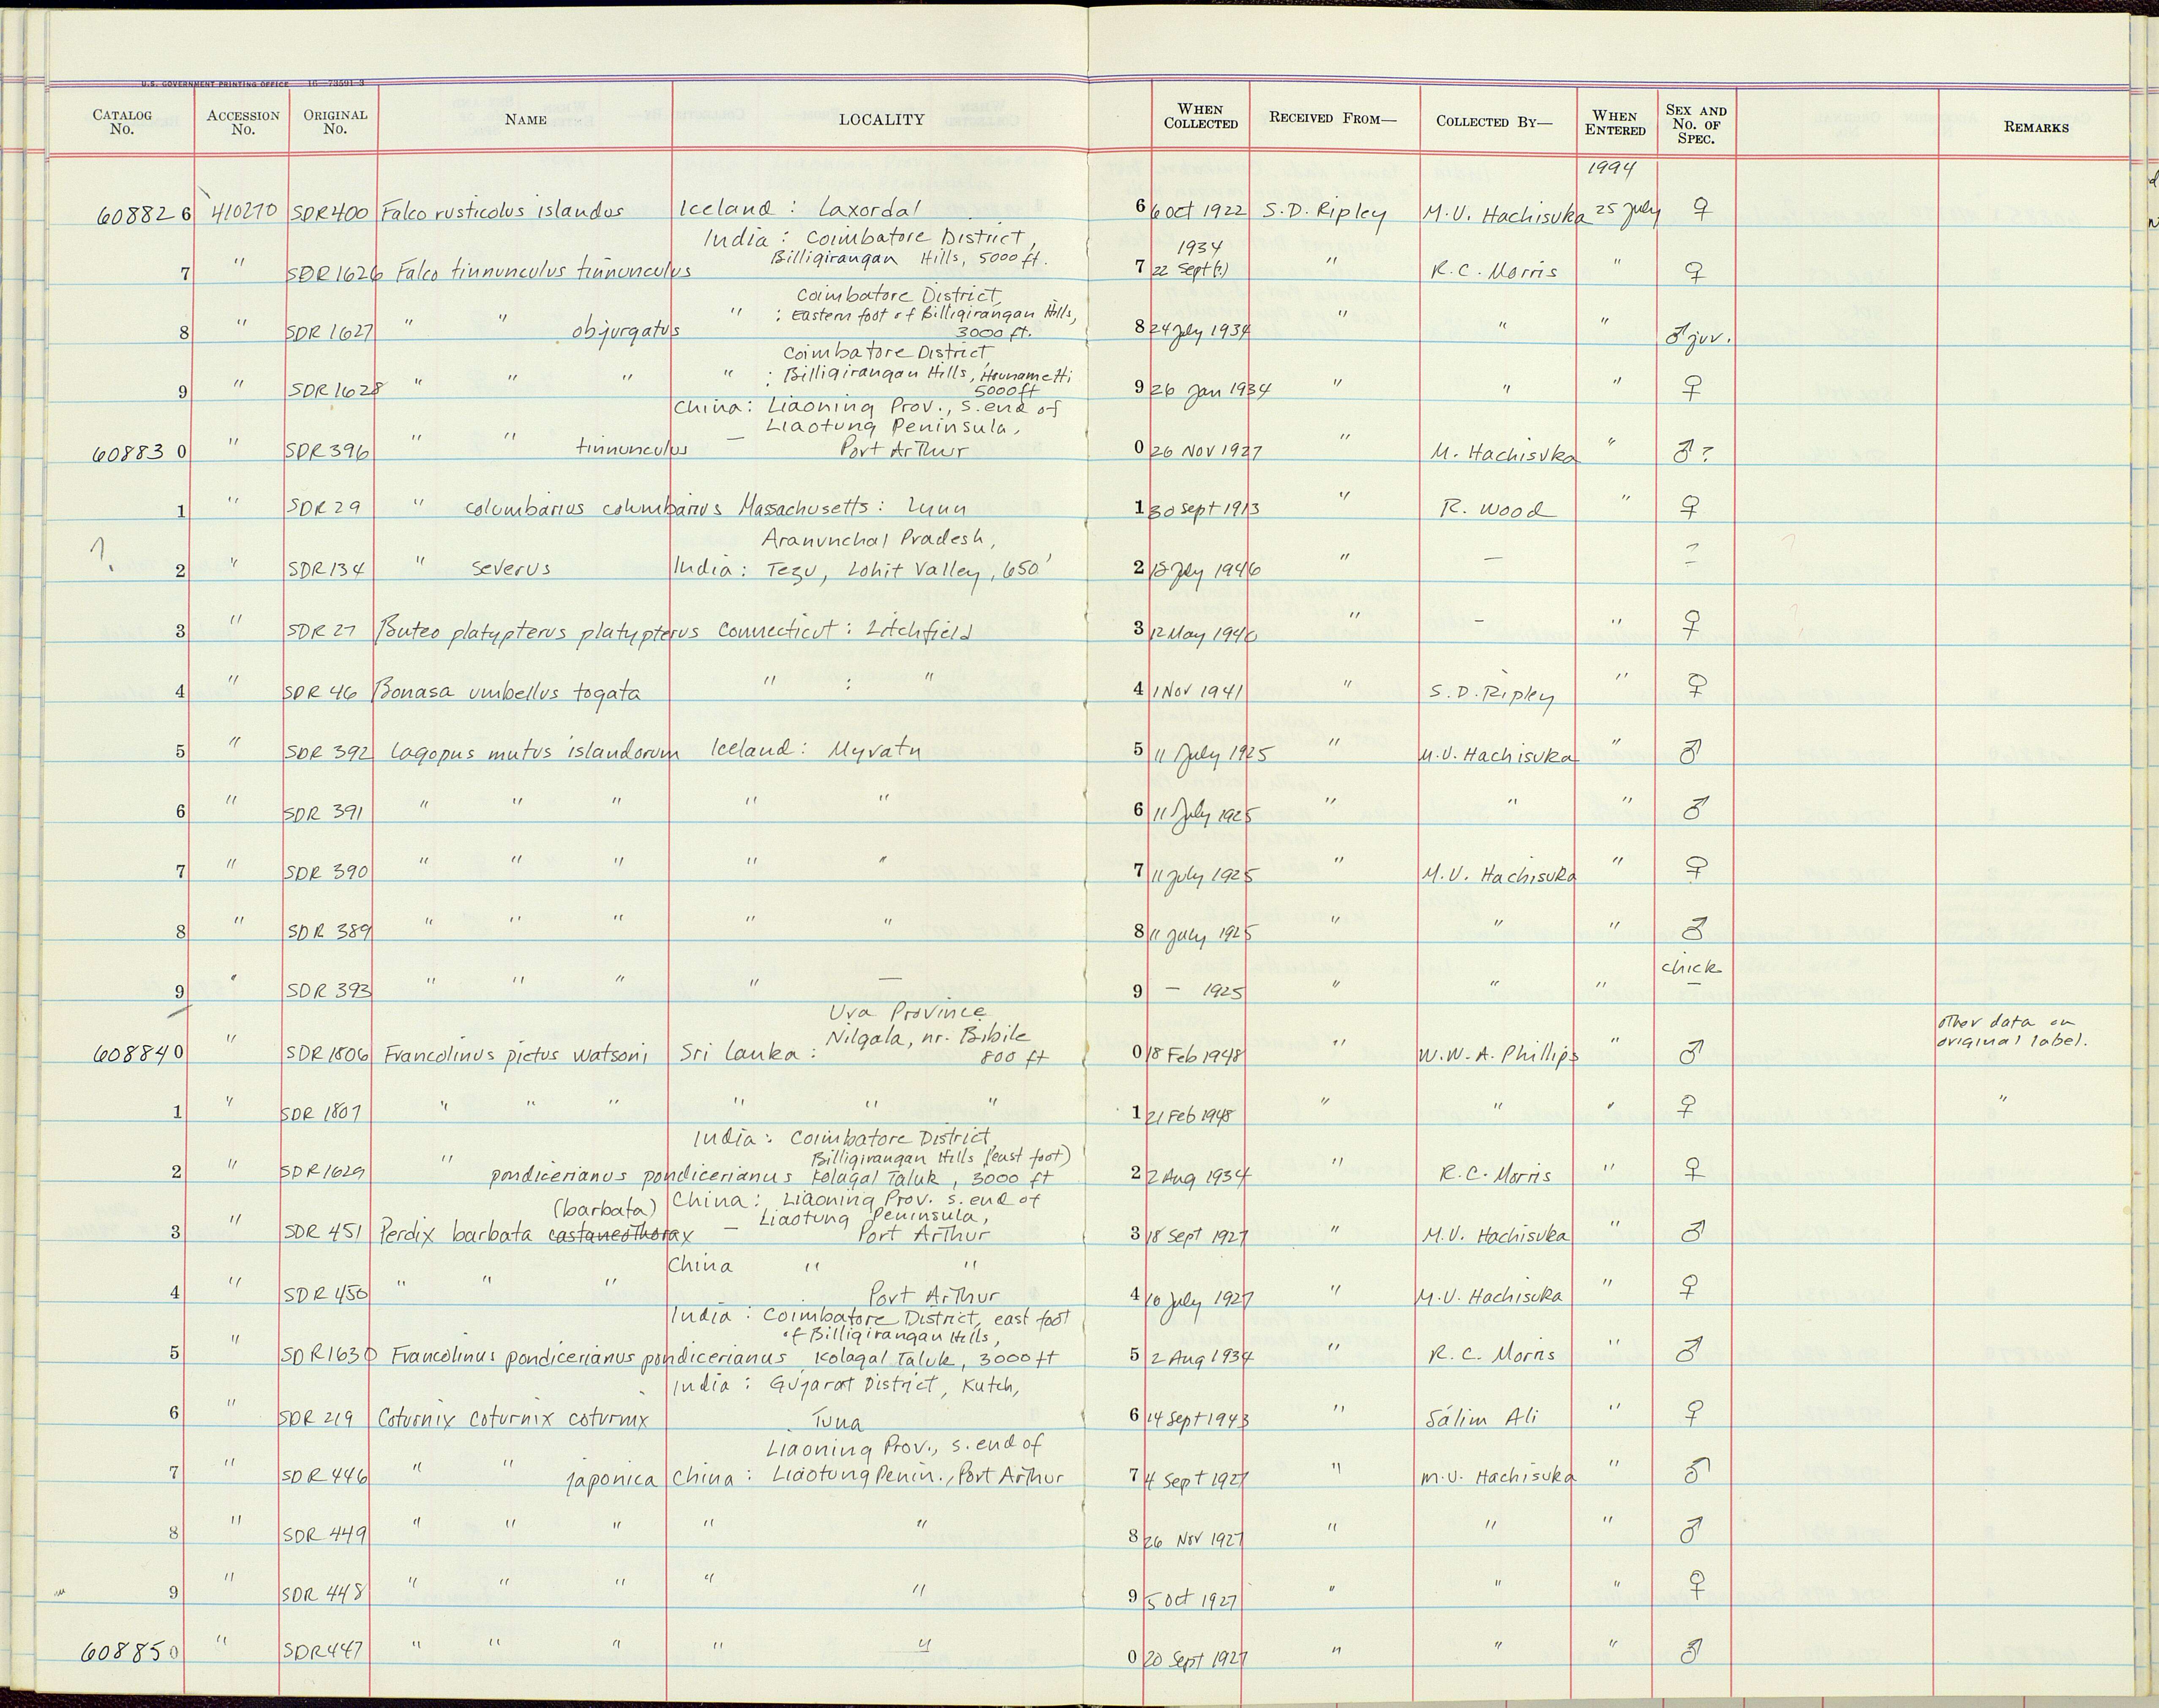 U.S. GOVERNMENT PRINTING OFFICE 16—73591-3
CATALOG No. ACCESSION No. ORIGINAL No. NAME LOCALITY WHEN COLLECTED RECEIVED FROM— COLLECTED BY— WHEN ENTERED SEX AND No. OF SPEC. REMARKS
1994
608826 410270 SDR400 Falco rusticolus islandus Iceland : Laxordal 6 6 Oct 1922 S.D. Ripley M.U. Hachisuka 25 July ♀
India : Coimbatore District,
Billigirangan Hills, 5000 ft. 1934
7 " SDR1626 Falco tinnunculus tinnunculus 7 22 Sept(?) " R.C. Morris " ♀
Coimbatore District
" : Eastern foot of Billigirangan Hills,
8 " SDR 1627 " " objurgatus 3000 ft. 8 24 July 1934 " " " ♂ juv.
Coimbatore District
" : Billigirangan Hills, Hounametti
9 " SDR 1628 " " " 5000 ft 9 26 Jan 1934 " " " ♀
China : Liaoning Prov., S. end of
Liaotung Peninsula,
608830 " SDR 396 " " tinnunculus — Port Arthur 0 26 Nov 1927 " M. Hachisuka " ♂ ?
1 " SDR 29 " columbarius columbarius Massachusetts : Lynn 1 30 Sept 1913 " R. Wood " ♀
Aranunchal Pradesh,
? 2 " SDR134 " severus India : Tezu, Lohit Valley, 650' 2 18 July 1946 " — ?
3 " SDR 27 Buteo platypterus platypterus Connecticut : Litchfield 3 12 May 1940 " — " ♀
4 " SDR 46 Bonasa umbellus togata " : " 4 1 Nov 1941 " S.D. Ripley " ♀
5 " SDR 392 Lagopus mutus islandorum Iceland : Myvatn 5 11 July 1925 " M.U. Hachisuka " ♂
6 " SDR 391 " " " " " 6 11 July 1925 " " " ♂
7 " SDR 390 " " " " " 7 11 July 1925 " M.U. Hachisuka " ♀
8 " SDR 389 " " " " " 8 11 July 1925 " " " ♂
chick
9 " SDR 393 " " " " — 9 — 1925 " " " —
Uva Province
Nilgala, nr. Bibile other data on original label.
608840 " SDR1806 Francolinus pictus watsoni Sri Lanka : 800 ft 0 18 Feb 1948 " W.W.A. Phillips " ♂
1 " SDR 1807 " " " " " " 1 21 Feb 1948 " " " ♀ "
India : Coimbatore District,
Billigirangan Hills (east foot)
2 " SDR1629 " pondicerianus pondicerianus Kolagal Taluk, 3000 ft 2 2 Aug 1934 " R.C. Morris " ♀
(barbata) China : Liaoning Prov. S. end of
— Liaotung Peninsula,
3 " SDR 451 Perdix barbata castaneothorax Port Arthur 3 18 Sept 1927 " M.U. Hachisuka " ♂
China " "
4 " SDR 450 " " " Port Arthur 4 10 July 1927 " M.U. Hachisuka " ♀
India : Coimbatore District, east foot
of Billigirangan Hills,
5 " SDR1630 Francolinus pondicerianus pondicerianus Kolagal Taluk, 3000 ft 5 2 Aug 1934 " R.C. Morris " ♂
India : Gujarat District, Kutch,
6 " SDR 219 Coturnix coturnix coturnix Tuna 6 14 Sept 1943 " Sálim Ali " ♀
Liaoning Prov., S. end of
7 " SDR 446 " " japonica China : Liaotung Penin., Port Arthur 7 4 Sept 1927 " M.U. Hachisuka " ♂
8 " SDR 449 " " " " " 8 26 Nov 1927 " " " ♂
9 " SDR 448 " " " " " 9 5 Oct 1927 " " " ♀
608850 " SDR447 " " " " " 0 20 Sept 1927 " " " ♂